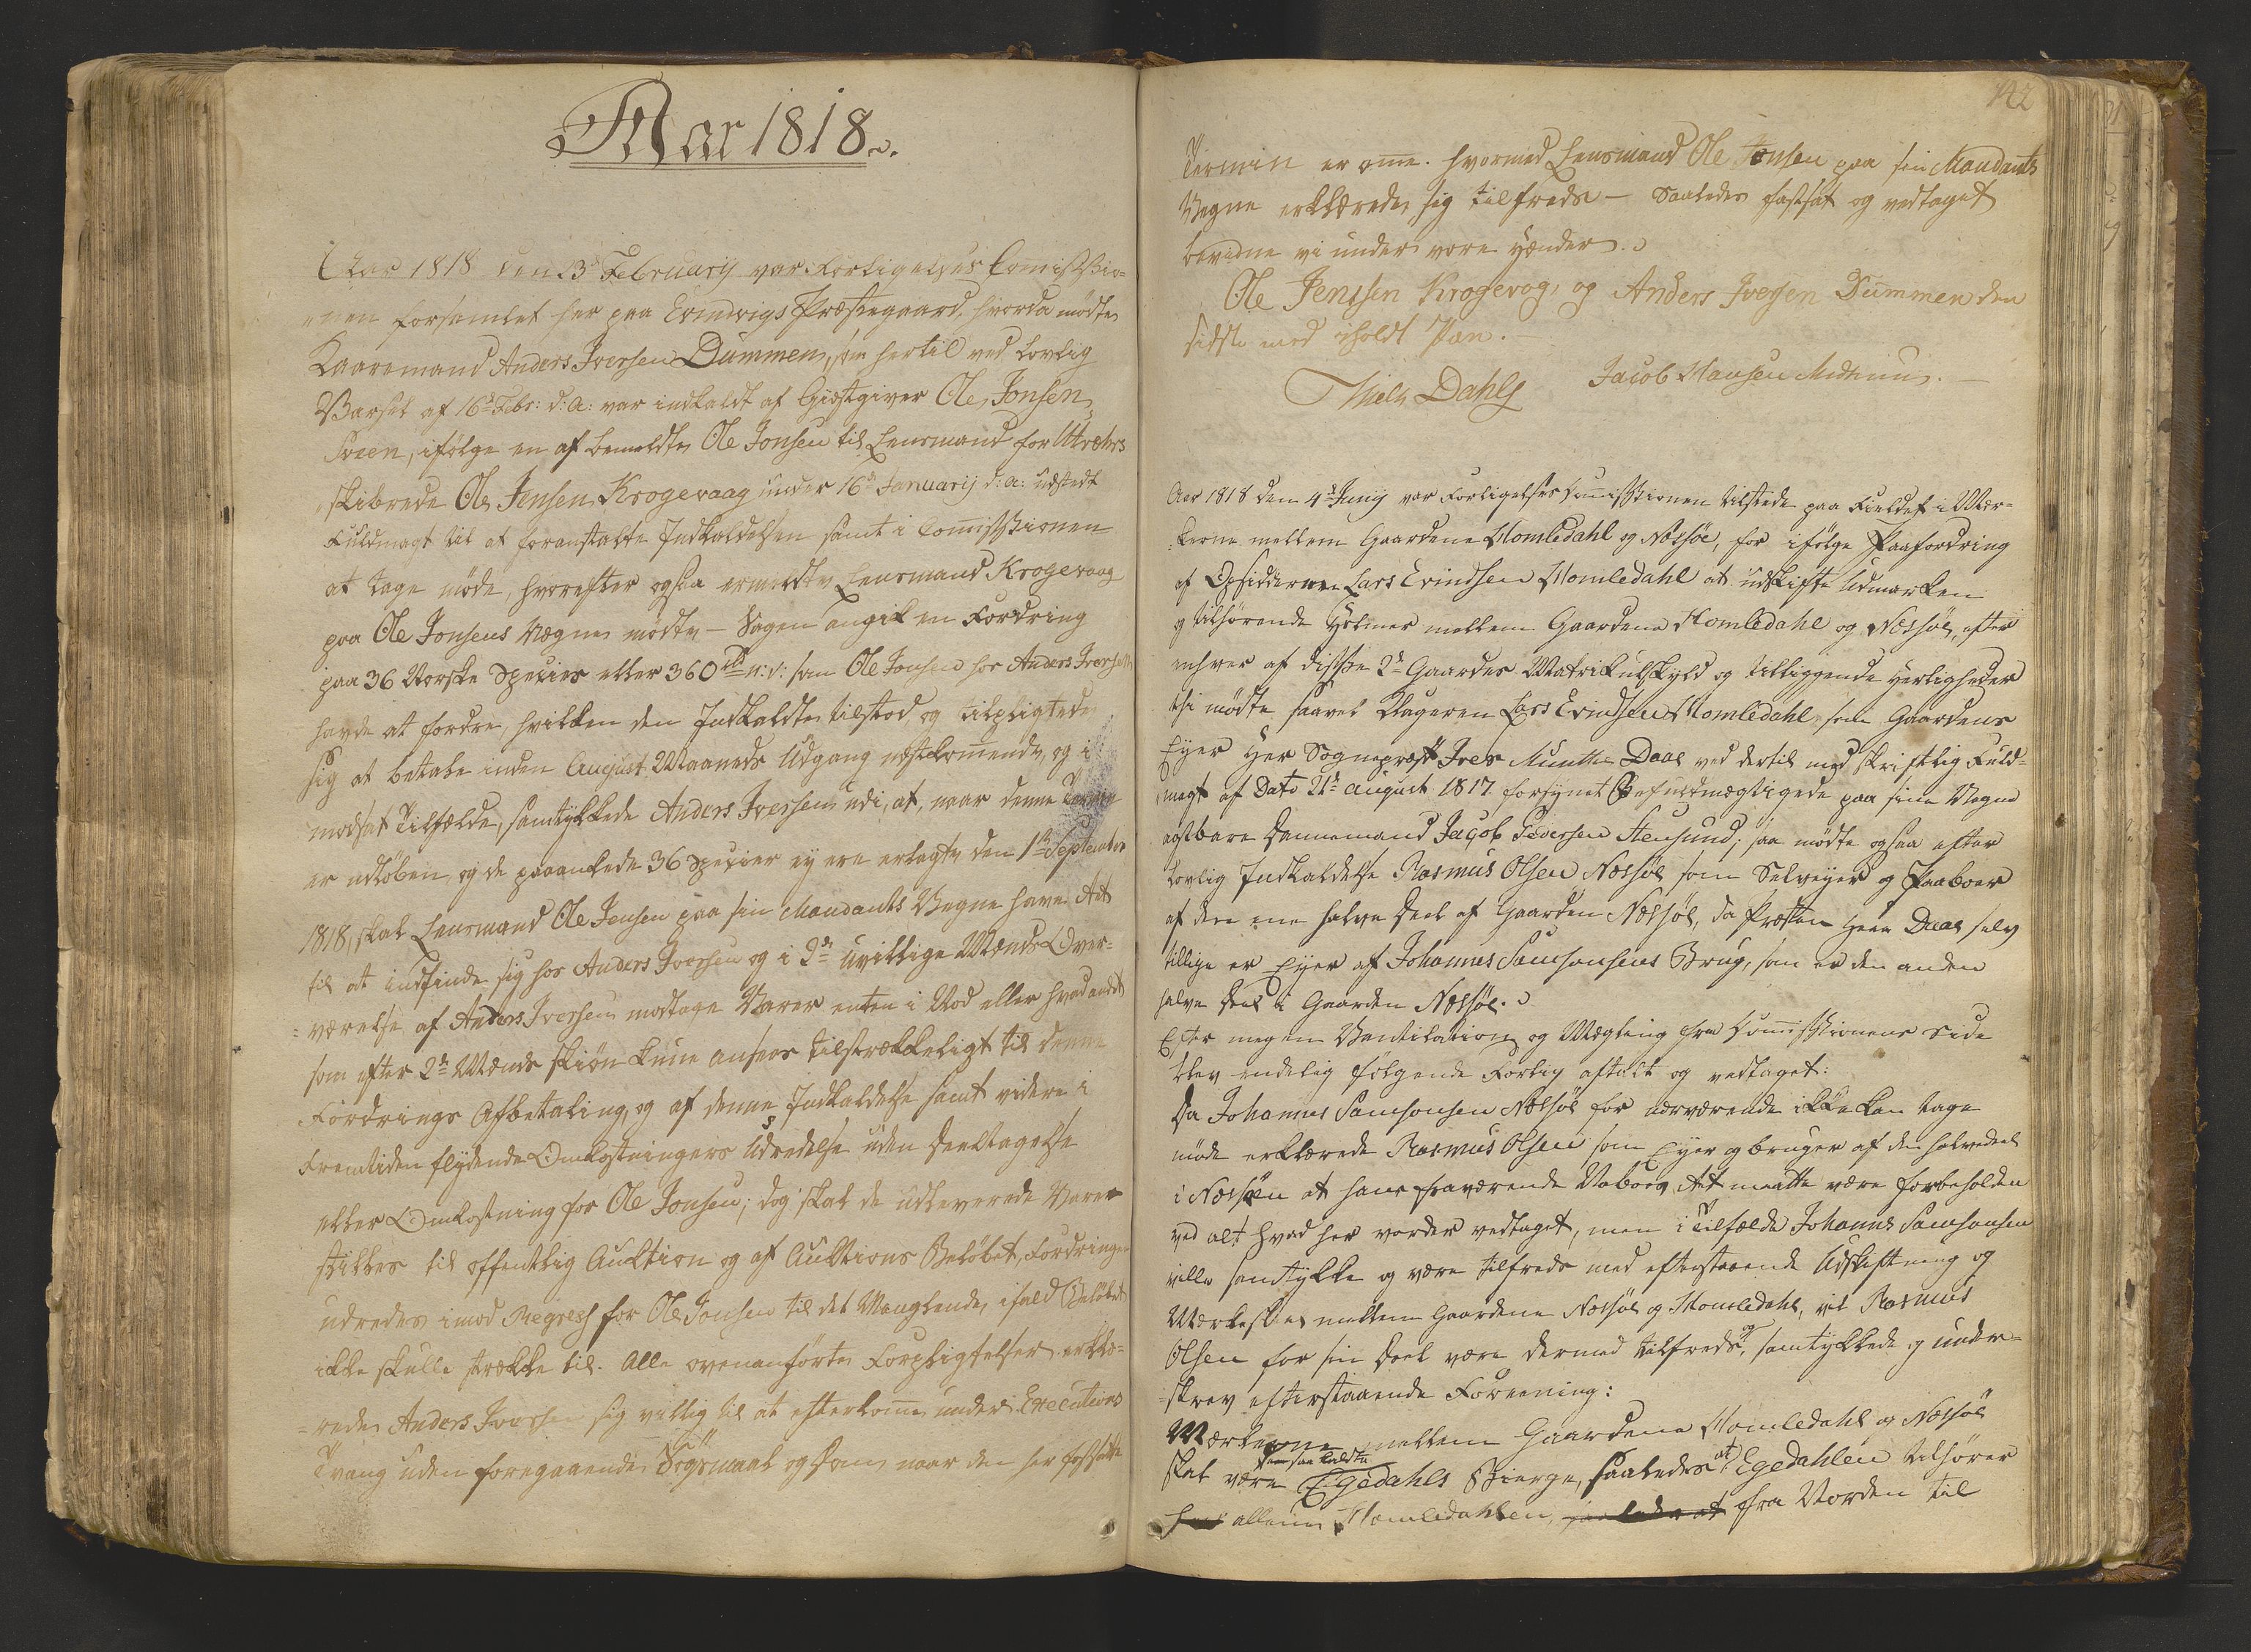 Aar 1818.
Aar 1818 den 23de February var Forligelses Commissio-
nen forsamlet her paa Evindvigs Præstegaard, hvorda mødte
Kaaremand Anders Iversen Dummen, som hertil ved lovlig
Varsel af 16de Febr: d: a: var indkaldt af Giæstgiver Ole Jonsen
ifølge en af bemeldte Ole Jonsen til Lensmand for Utvehrs
skibrede Ole Jensen Krogevaag under 16de Januarij d: a: udstedt
Fuldmagt til at foranstalte Indkaldelsen samt i Commissionen
at tage møde, hvorefter ogsaa ermeldte Lensmand Krogevaag
paa Ole Jonsens Vegne mødte – Sagen angik en Fordring
paa 36 Norske Species eller 360 rdr n: v: som Ole Jonsen hos Anders Iversen
havde at fordre, hvilken den Indkaldte tilstod, og tilpligtede
sig at betale inden August Maaneds Udgang næstkommende, og i
modsat Tilfælde, samtykkede Anders Iversen udi, at, naar denne Termin
er udløben, og de paaankede 36 Specier ej ere erlagte den 1te September
1818, skal Lensmand Ole Jensen paa sin Mandants Vegne have Ret
til at indfinde sig hos Anders Iversen og i 2de uvillige Mænds Over-
værelse af Anders Iversen modtage Varer enten i Nod eller hvad andet
som efter 2de Mænds skiøn kunne ansees tilstrækkeligt til denne
Fordrings Afbetaling, og af denne Indkaldelse samt videre i
Fremtiden flydende Omkostningers Udredelse uden Deeltagelse
eller Omkostning for Ole Jonsen; dog skal de udleverede Varer
stilles til offentlig Auktion og af Auktions Beløbet, Fordringen
udredes imod Regress for Ole Jonsen til det Manglende, ifald Beløbet
ikke skulle strække til. Alle ovenanførte Forpligtelser erklæ-
rede Anders Iversen sig villig til at efterkomme under Executions
Tvang uden foregaaende Søgsmaal og Dom naar den her fastsatte
142
Termin er omme. hvormed Lensmand Ole Jensen paa sin Mandants
Vegne erklærede sig tilfreds – Saaledes fastsat og vedtaget
bevidne vi under vore Hænder.
Ole Jenssen Krogevog, og Anders Iversen Dummen den
sidste med iholdt Pen.
Niels Dahl Jacob Hansen
Aar 1818 den 4de Junij var Forligelses Commissionen tilstede paa Fieldet i Mær-
kerne mellem Gaardene Homledahl og Nessøe, for ifølge Paafordring
af Opsidderen Lars Evindsen Homledahl at udskifte Udmarken
og tilhørende Holmer mellem Gaardene Homledahl og Nessøe, efter
enhver af disse 2de Gaardes Matrikulskyld og tilliggende Herligheder
thi mødte saavel Klageren Lars Evindsen Homledahl som Gaardens
Eyer Her Sognepræst Iver Munthe Daae ved dertil med skriftlig Fuld-
magt af Dato 21de August 1817 forsynet Befuldmægtigede paa sine Vegne
agtbare Dannemand Jacob Pedersen Stensund; saa mødte ogsaa efter
lovlig Indkaldelse Rasmus Olsen Nessøe som Selveyer og Paaboer
af den ene halve Deel af Gaarden Nessøe, da Præsten Herr Daae selv
tillige er Eyer af Johannes Samsonsens Brug, som er den anden
halve Deel i Gaarden Nessøe.
Efter megen Ventilation og Mægling fra Commissionens Side
blev endelig følgende Forlig aftalt og vedtaget:
Da Johannes Samsonsen Nessøe for nærværende ikke kan tage
møde erklærede Rasmus Olsen som Eyer og bruger af den halvedeel
i Nessøen at hans fraværende Naboes Ret maatte være forbeholden
ved alt hvad her vorder vedtaget, men i Tilfælde Johannes Samsonsen
ville samtykke og være tilfreds med efterstaaende Udskiftning og
Mærkeskiel mellem Gaardene Nessøe og Homledahl, vil Rasmus
Olsen for sin Deel være dermed tilfreds, og samtykkede og under-
skrev efterstaaende Forening:
Mærkerne mellem Gaardene Homledahl og Nessøe
skal være den saa kaldte Egedahls Bierge, saaledes at Egedahlen tilhører
allene Homledahlen, saaledes at fra Norden til